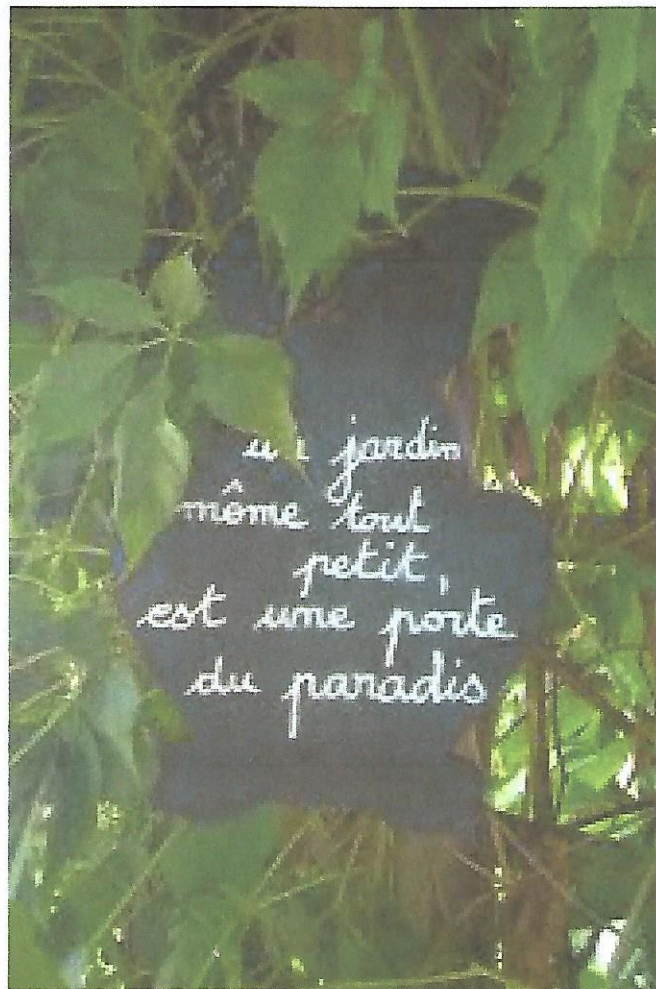 un jardin
même tout
petit,
est une porte
du paradis